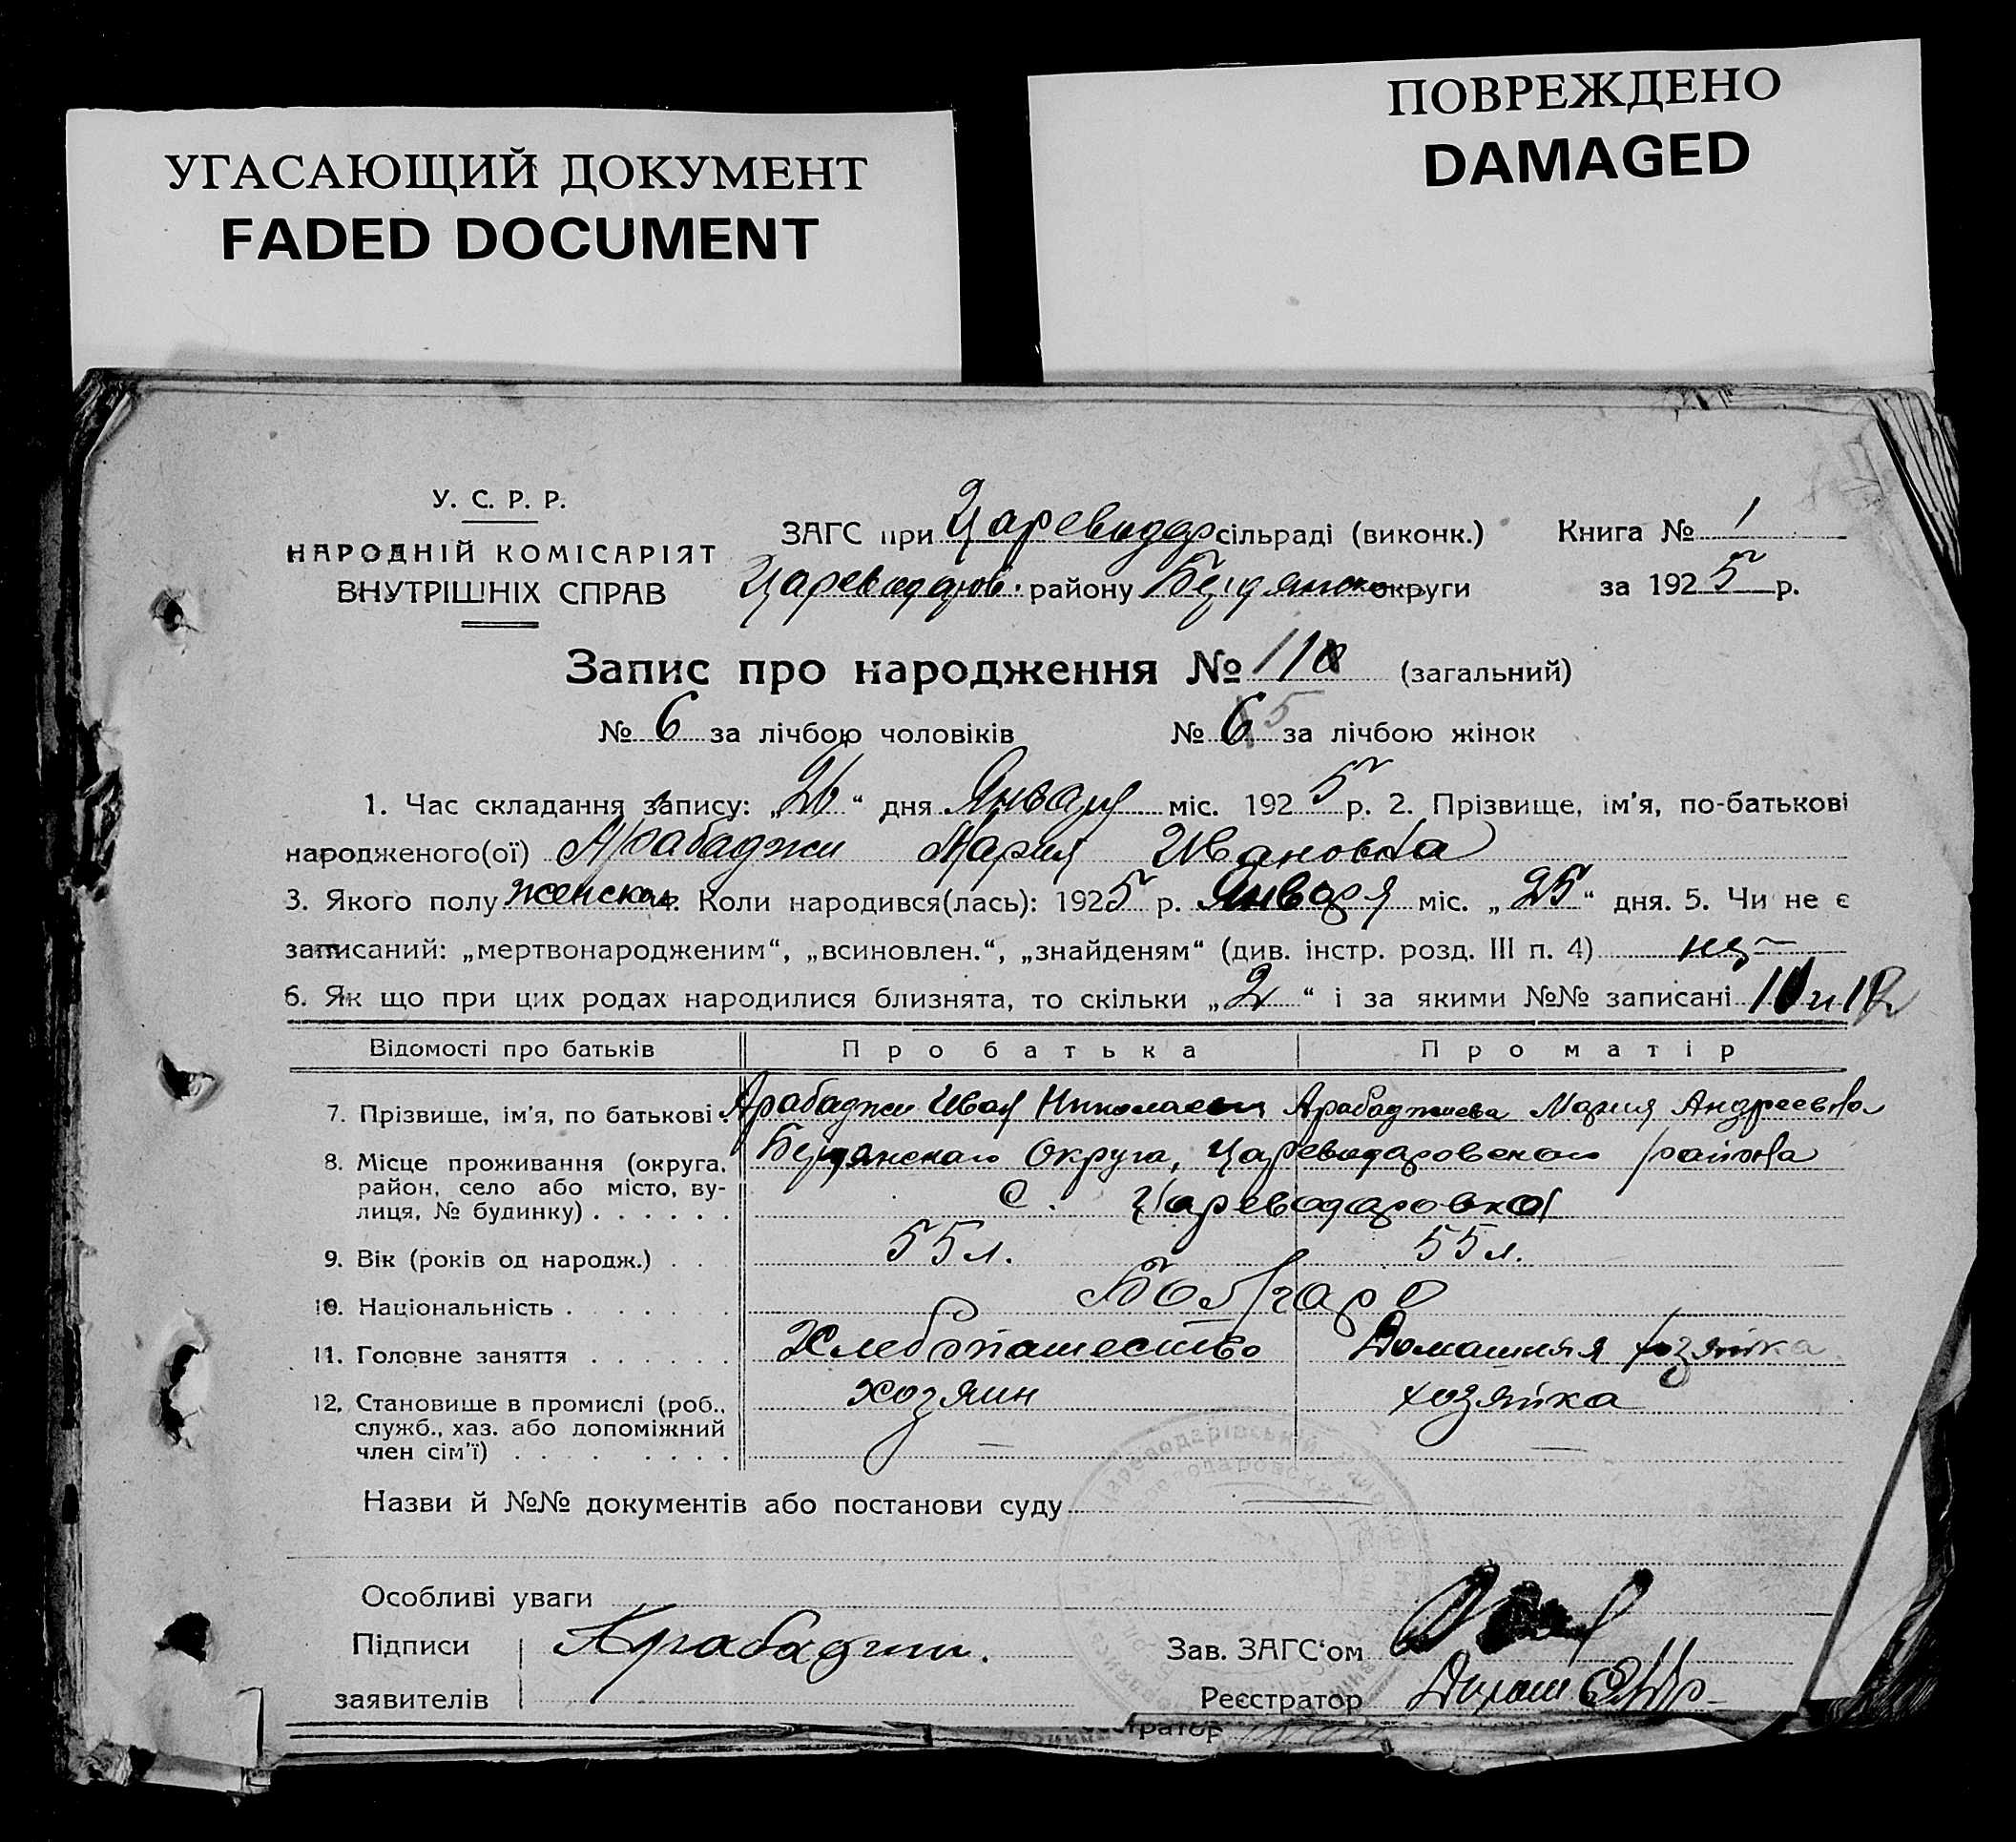 УГАСАЮЩИЙ ДОКУМЕНТ
FADED DOCUMENT
ПОВРЕЖДЕНО
DAMAGED
У. С. Р. Р.
НАРОДНІЙ КОМІСАРІЯТ
ВНУТРІШНІХ СПРАВ
ЗАГС при Цареводар сільраді (виконк.) Книга № 1
Цареводаров. району Бердянск округи за 1925 р.
Запис про народження № 11 (загальний)
№ 6 за лічбою чоловіків № 6 5 за лічбою жінок
1. Час складання запису: „26“ дня Января міс. 1925 р. 2. Прізвище, ім'я, по-батькові
народженого(ої) Арабаджи Мария Ивановна
3. Якого полу женскаго 4. Коли народився(лась): 1925 р. Января міс. „25“ дня. 5. Чи не є
записаний: „мертвонародженим“, „всиновлен.“, „знайденям“ (див. інстр. розд. III п. 4) нет
6. Як що при цих родах народилися близнята, то скільки „2“ і за якими №№ записані
Відомості про батьків Про батька Про матір
7. Прізвище, ім'я, по батькові . Арабаджи Иван Николаевич Арабаджиева Мария Андреевна
8. Місце проживання (округа, Бердянскаго Округа, Цареводаровскаго района
район, село або місто, ву- с. Цареводаровка
лиця, № будинку) . . . . . .
9. Вік (років од народж.) . . 55 л. 55 л.
10. Національність . . . . . . Болгаре
11. Головне заняття . . . . . . Хлебопашество Домашняя хозяйка
12. Становище в промислі (роб., хозяин хозяйка
служб., хаз. або допоміжний
член сім'ї) . . . . . . . . — —
Назви й №№ документів або постанови суду
Особливі уваги
Підписи Арабаджи. Зав. ЗАГС'ом
заявителів Реєстратор
тратор